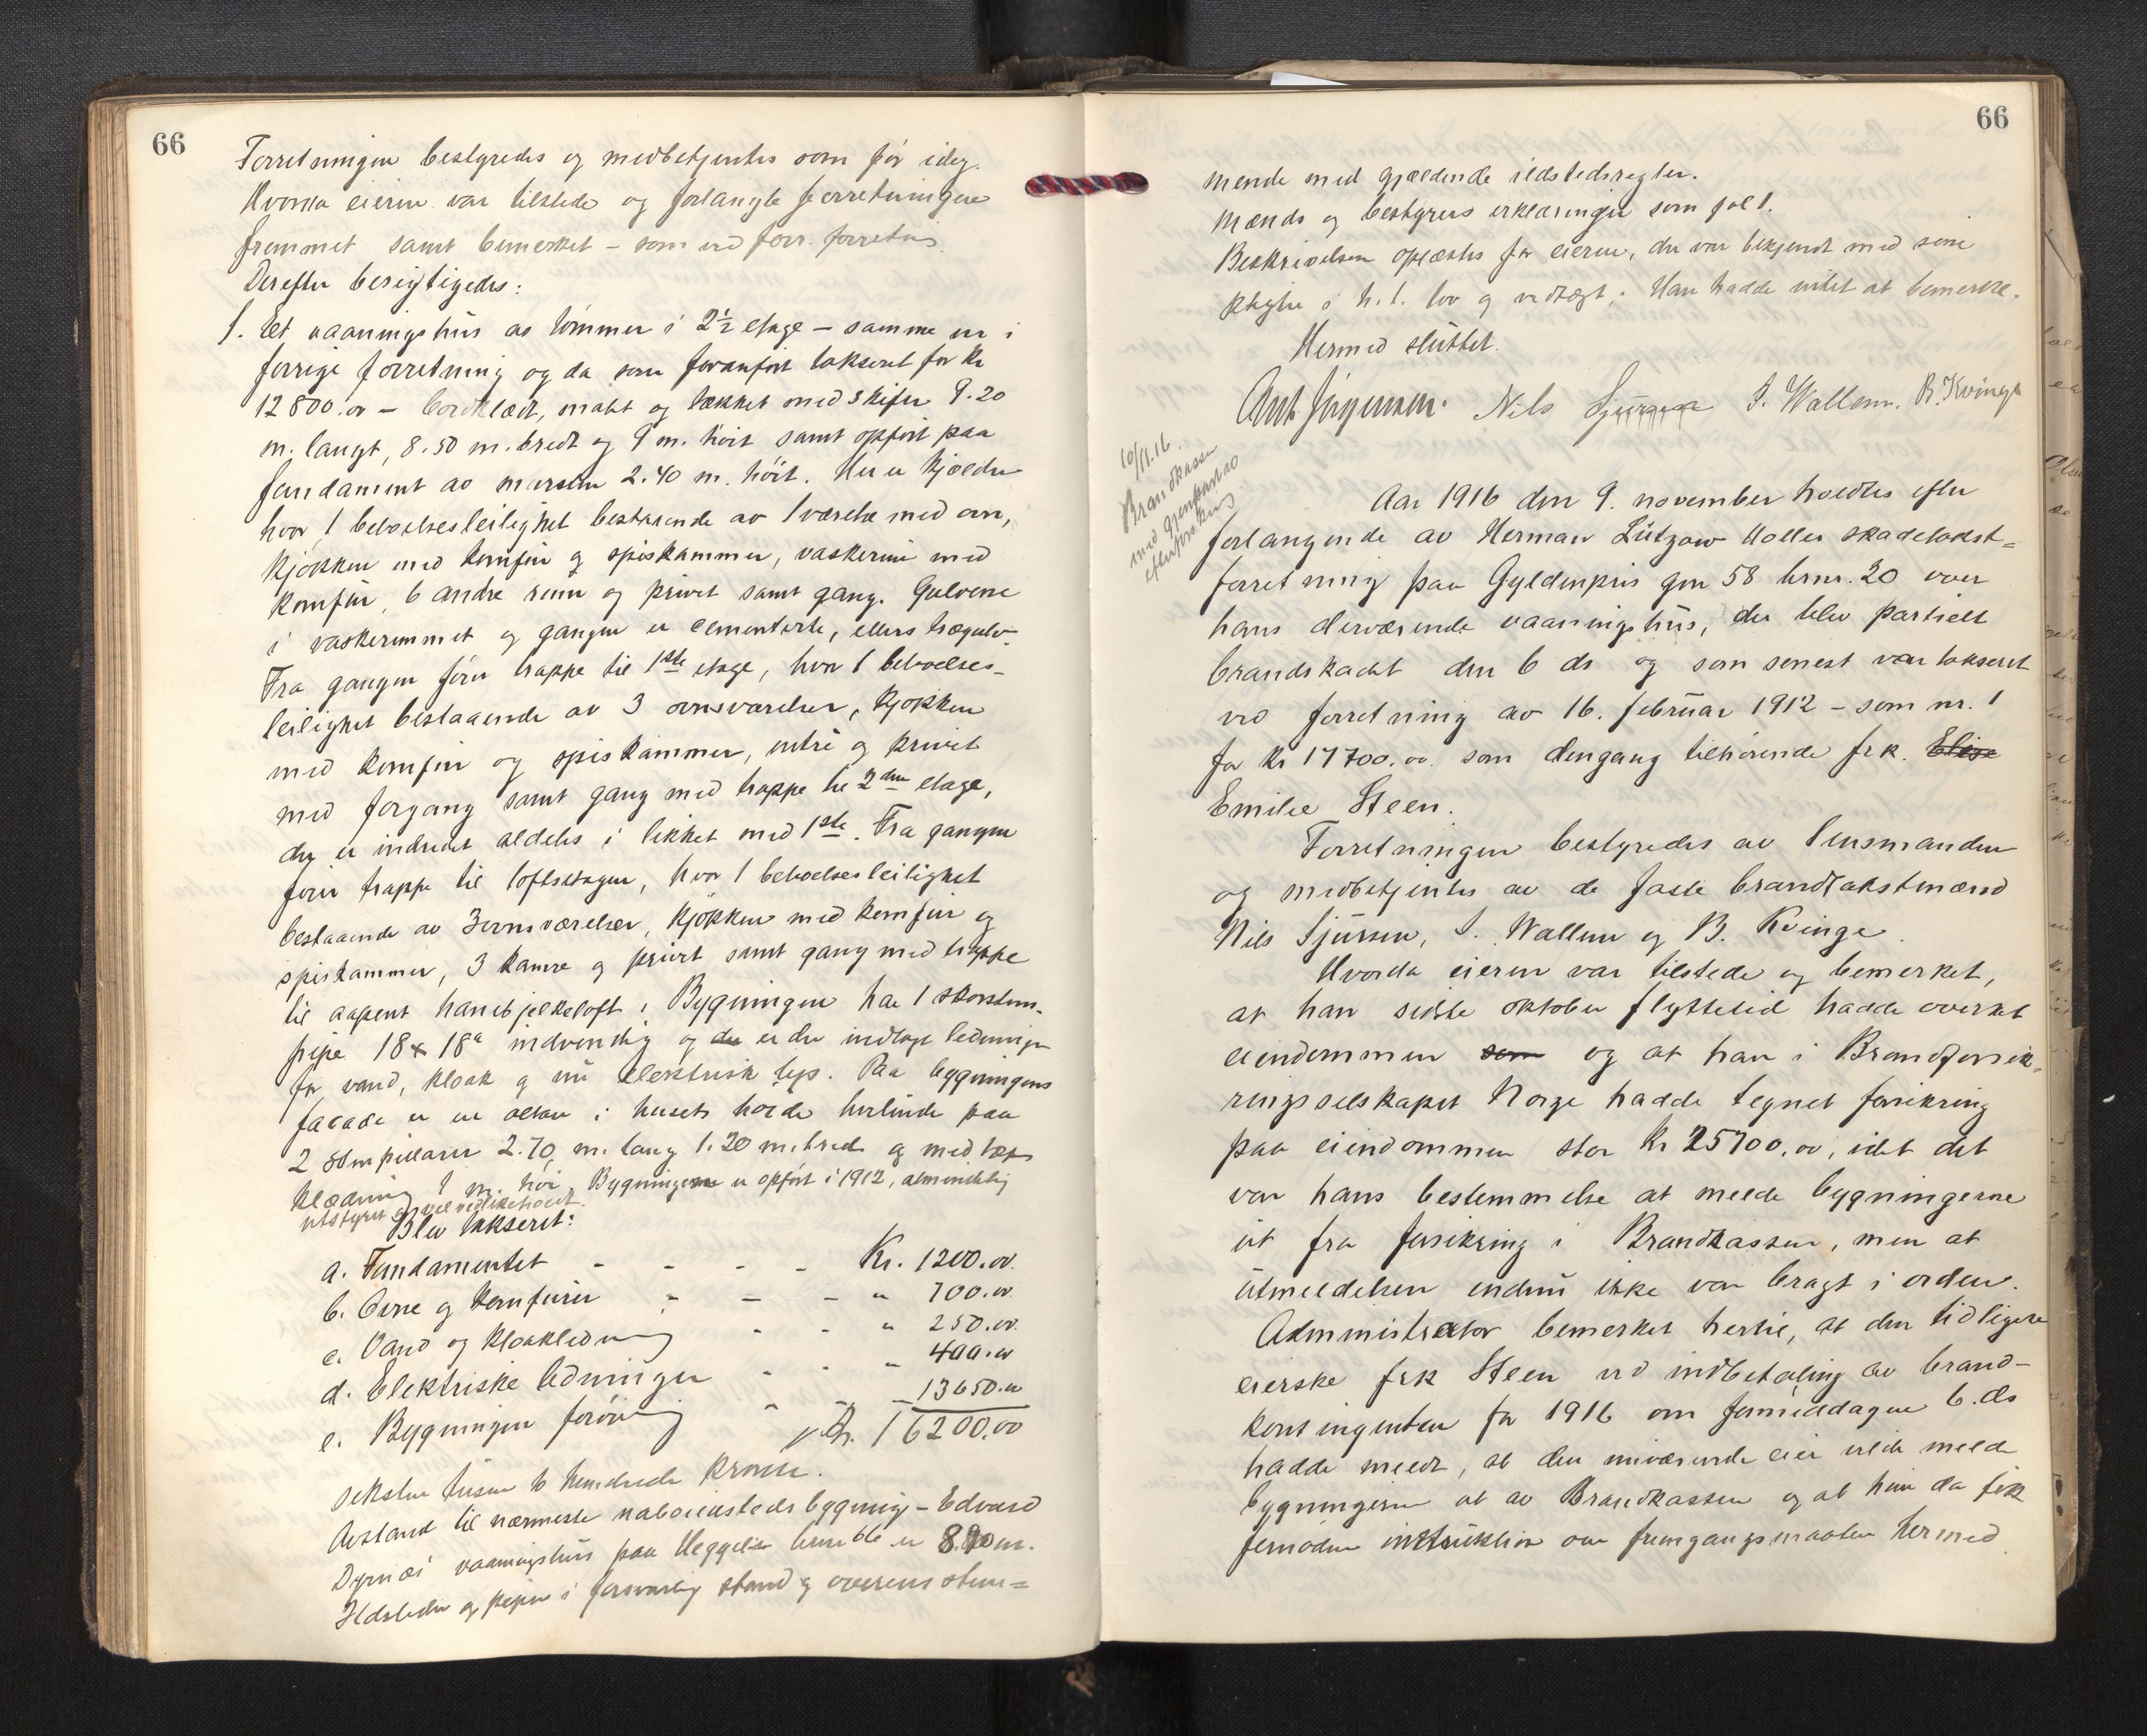 66
Forretningen bestyredes og medbetjentes som før idag.
Hvorda eieren var tilstede og forlangte forretningen
fremmet samt bemerket – som ved forr. forretn.
Derefter besigtigedes:
1. Et vaaningshus av tømmer i 2½ etage – samme nr i
forrige forretning og da som foranført takseret for kr
12800.00 – bordklædt, malt og tækket med skifer 9.20
m. langt, 8.50 m. bredt og 9 m. høit samt opført paa
fundament av mursten 2.40 m. høit. Her er kjælder
hvor 1 beboelsesleilighet bestaaende av 1 værelse med ovn,
kjøkken med komfur og spiskammer, vaskerum med
komfur, 6 andre rum og privet samt gang. Gulvene
i vaskerummet og gangen er cementerte, ellers trægulv.
Fra gangen fører trappe til 1ste etage, hvor 1 beboelses-
leilighet bestaaende av 3 ovnsværelser, kjøkken
med komfur og spiskammer, entré og privet
med forgang samt gang med trappe til 2den etage,
der er indredet aldeles i likhet med 1ste. Fra gangen
fører trappe til loftsetagen, hvor 1 beboelsesleilighet
bestaaende av 3 ovnsværelser, kjøkken med komfur og
spiskammer, 3 kamre og privet samt gang med trappe
til aapent hanebjelkeloft. Bygningen har 1 skorstens-
pipe 18 x 18" indvendig og der er der indlagt ledninger
for vand, kloak og nu elektrisk lys. Paa bygningens
facade er en altan i husets høide hvilende paa
2 stenpillarer 2.70 m. lang 1.20 m. bred og med tæt
klædning 1 m. høi. Bygningen er opført i 1912, almindelig
utstyret og vel vedlikeholdt.
Blev takseret:
a. Fundamentet - - - - Kr. 1200.00
b. Ovne og komfurer - - - " 700.00
c. Vand og kloakledning - - " 250.00
d. Elektriske ledninger - - " 400.00
e. Bygningen forøvrig - - - 13650.00
Kr. 16200.00
seksten tusen to hundrede kroner.
Avstand til nærmeste naboeiasteds bygning – Edvard
Dyrnæs vaaningshus paa brnr 66 er 8.20 m.
Ildsteder og piper i forsvarlig stand og overensstem=
66
mende med gjældende ildstedsregler.
Mænds og bestyrers erklæringer som fol 1.
Beskrivelsen oplæstes for eieren, der var bekjendt med sine
pligter i h.t. lov og vedtægt. Han hadde intet at bemerke.
Hermed sluttet.
Ant. Jørgensen. Nils Sjursen S. Wallem. B. Kvinge
10/11.16.
Brandkassen
med gjenpart
Aar 1916 den 9. november holdtes efter
forlangende av Herman Lützow Holler skadetakst=
forretning paa Gyldenpris gnr 58 brnr. 20 over
hans derværende vaaningshus, der blev partielt
brandskadet den 6 ds og som senest var takseret
ved forretning av 16. februar 1912 – som nr. 1
for kr 17700.00 som dengang tilhørende frk. Elise
Emilie Steen.
Forretningen bestyredes av lensmanden
og medbetjentes av de faste brandtakstmænd
Nils Sjursen, S. Wallem og B. Kvinge.
Hvorda eieren var tilstede og bemerket,
at han sidste oktober flyttetid hadde overtat
eiendommen som og at han i Brandforsik=
ringsselskapet Norge hadde tegnet forsikring
paa eiendommen stor kr 25700.00, idet det
var hans bestemmelse at melde bygningerne
ut fra forsikring i Brandkassen, men at
utmeldelsen endnu ikke var bragt i orden.
Administrator bemerket hertil, at den tidligere
eierske frk Steen ved indbetaling av brand-
kontingenten for 1916 om formiddagen 6. ds
hadde meldt, at den nuværende eier vilde melde
bygningerne ut av Brandkassen og at hun da fik
fornøden instruktion om fremgangsmaaten hermed